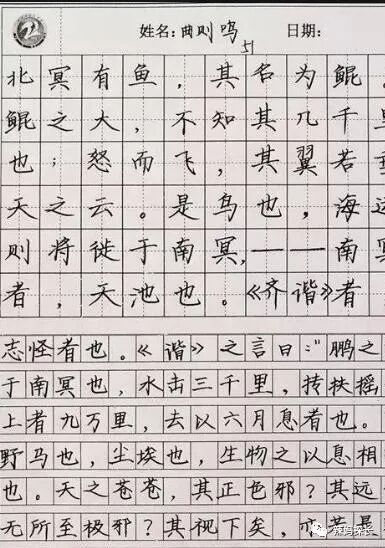 姓名:曲则鸣 51 日期:
北冥有鱼，其名为鲲。
鲲之大，不知其几千里
也；怒而飞，其翼若垂
天之云。是鸟也，海运
则将徙于南冥，——南冥
者，天池也。《齐谐》者
志怪者也。《谐》之言曰：“鹏之
于南冥也，水击三千里，抟扶摇
上者九万里，去以六月息者也。
野马也，尘埃也，生物之以息相
也。天之苍苍，其正色邪？其远
无所至极邪？其视下矣，亦若是